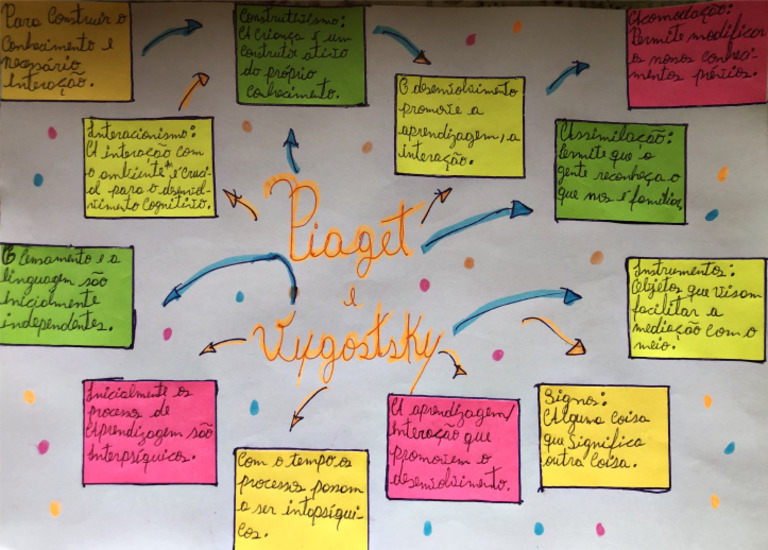 Para Construir o
Conhecimento é
necessário
Interação.
Construtivismo:
A Criança é um
construtor ativo
do próprio
conhecimento.
Acomodação:
Permite modificar
os nossos conheci-
mentos prévios.
O desenvolvimento
promove a
aprendizagem, a
interação.
Interacionismo:
A interação com
o ambiente é cruci-
al para o desenvol-
vimento Cognitivo.
Assimilação:
Permite que a
gente reconheça o
que nos é familiar,
Piaget
e
Vygostsky
O Pensamento e a
linguagem são
Inicialmente
independentes.
Instrumentos:
Objetos que visam
facilitar a
mediação com o
meio.
Inicialmente os
processos de
Aprendizagem são
Interpsíquicos.
Com o tempo os
processos passam
a ser intopsíqui-
cos.
A aprendizagem/
Interação que
promovem o
desenvolvimento.
Signos:
Alguma coisa
que Significa
outra Coisa.